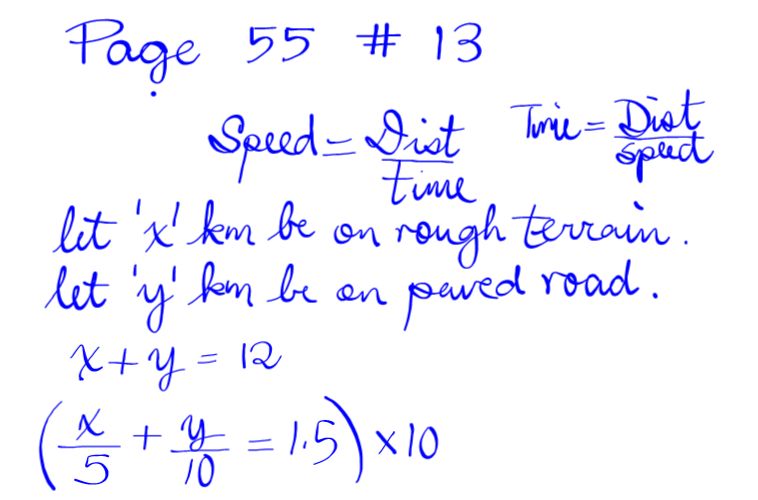 Page 55 # 13
Speed = Dist/time Time = Dist/speed
let 'x' km be on rough terrain.
let 'y' km be on paved road.
x + y = 12
(x/5 + y/10 = 1.5) × 10